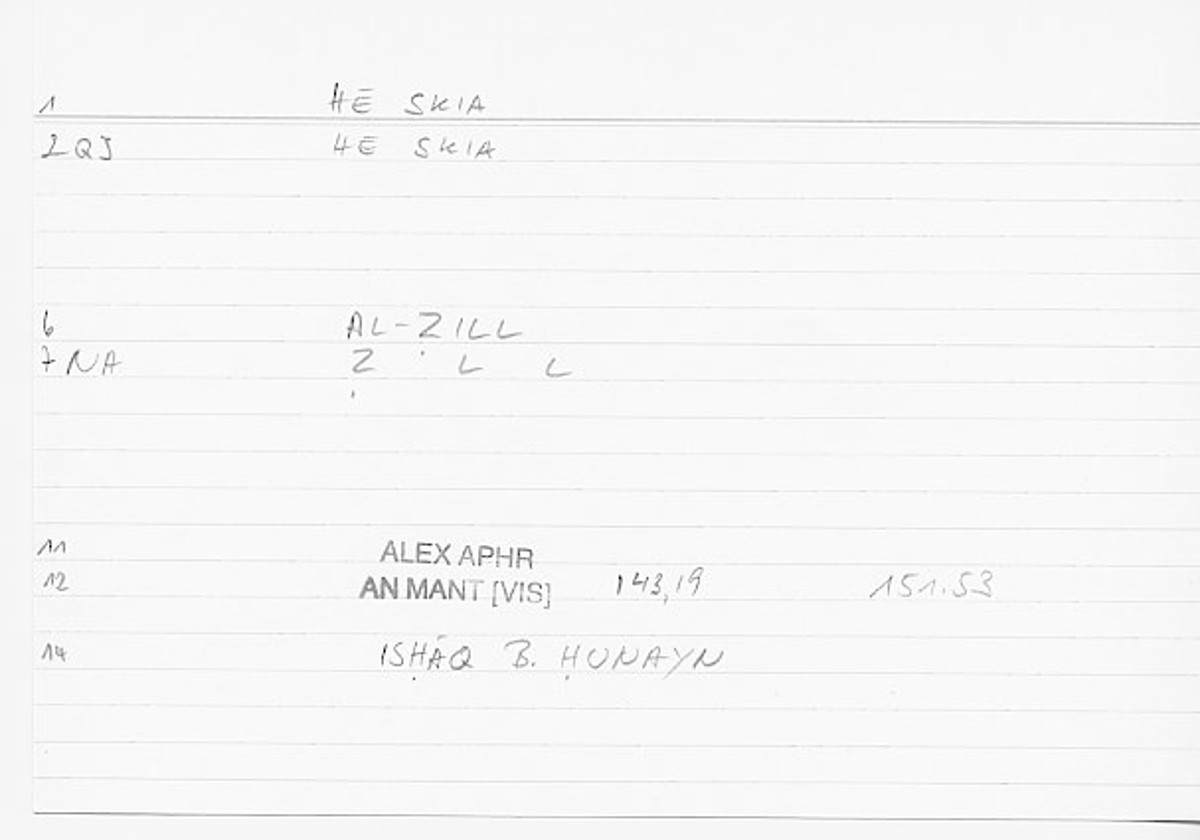 1 HĒ SKIA
2 QJ HĒ SKIA
6 AL-ẒILL
7 NA Ẓ L L
11 ALEX APHR
12 AN MANT [VIS] 143,19 151.53
14 ISḤĀQ B. ḤUNAYN